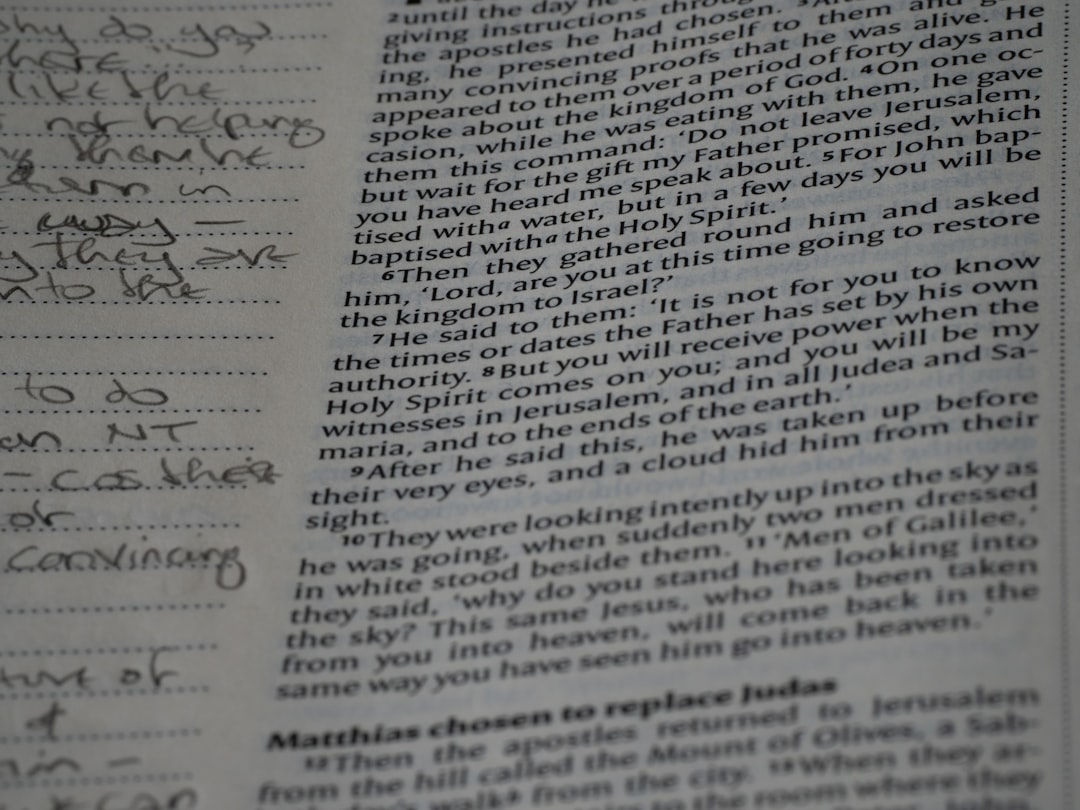 why do you
here...?
like the
not helping
them in
away –
they are
into the
to do
an NT
– cos there
or
convincing
of
&
–
can
2until the day he
giving instructions through
the apostles he had chosen.
ing, he presented himself to them and
many convincing proofs that he was alive. He
appeared to them over a period of forty days and
spoke about the kingdom of God. 4On one oc-
casion, while he was eating with them, he gave
them this command: ‘Do not leave Jerusalem,
but wait for the gift my Father promised, which
you have heard me speak about. 5For John bap-
tised witha water, but in a few days you will be
baptised witha the Holy Spirit.’
6Then they gathered round him and asked
him, ‘Lord, are you at this time going to restore
the kingdom to Israel?’
7He said to them: ‘It is not for you to know
the times or dates the Father has set by his own
authority. 8But you will receive power when the
Holy Spirit comes on you; and you will be my
witnesses in Jerusalem, and in all Judea and Sa-
maria, and to the ends of the earth.’
9After he said this, he was taken up before
their very eyes, and a cloud hid him from their
sight.
10They were looking intently up into the sky as
he was going, when suddenly two men dressed
in white stood beside them. 11‘Men of Galilee,’
they said, ‘why do you stand here looking into
the sky? This same Jesus, who has been taken
from you into heaven, will come back in the
same way you have seen him go into heaven.’
Matthias chosen to replace Judas
12Then the apostles returned to Jerusalem
from the hill called the Mount of Olives, a Sab-
walk from the city. 13When they ar-
to the room where they